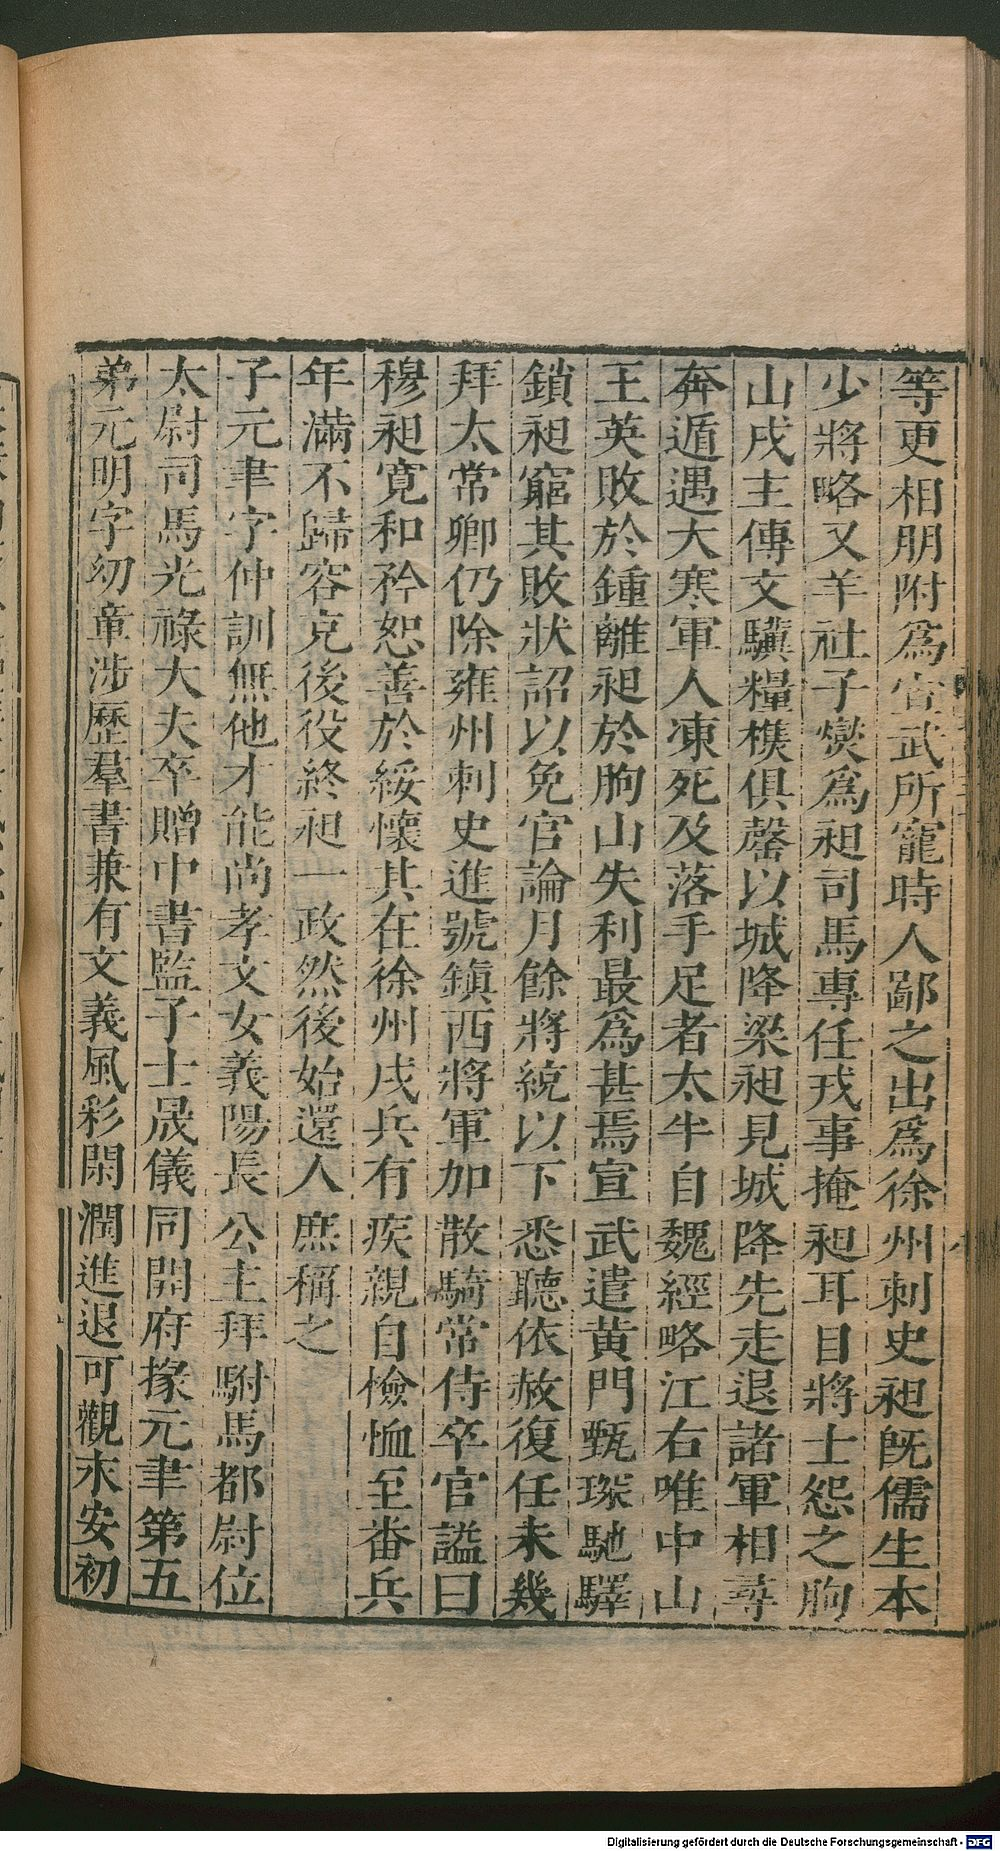 等更相朋附爲宣武所寵時人鄙之出爲徐州刺史昶旣儒生本
少將略又羊祉子燮爲昶司馬專任戎事掩昶耳目將士怨之朐
山戍主傅文驥糧樵俱罄以城降梁昶見城降先走退諸軍相尋
奔遁遇大寒軍人凍死及落手足者太半自魏經略江右唯中山
王英敗於鍾離昶於朐山失利最爲甚焉宣武遣黃門甄琛馳驛
鎖昶窮其敗狀詔以免官論月餘將統以下悉聽依赦復任未幾
拜太常卿仍除雍州刺史進號鎭西將軍加散騎常侍卒官謚曰
穆昶寬和矜恕善於綏懷其在徐州戍兵有疾親自檢恤至番兵
年滿不歸容克後役終昶一政然後始還人庶稱之
子元聿字仲訓無他才能尚孝文女義陽長公主拜駙馬都尉位
太尉司馬光祿大夫卒贈中書監子士晟儀同開府掾元聿第五
弟元明字幼章涉歷羣書兼有文義風彩閑潤進退可觀永安初
Digitalisierung gefördert durch die Deutsche Forschungsgemeinschaft - DFG